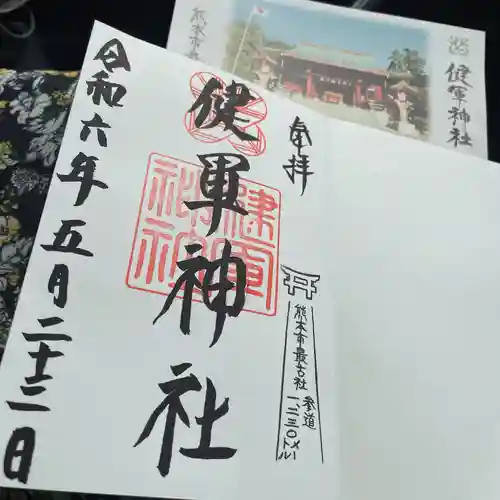 奉拝
健軍神社
健軍神社
令和六年五月二十三日
熊本市最古社
参道
一、二三〇メートル
健軍神社